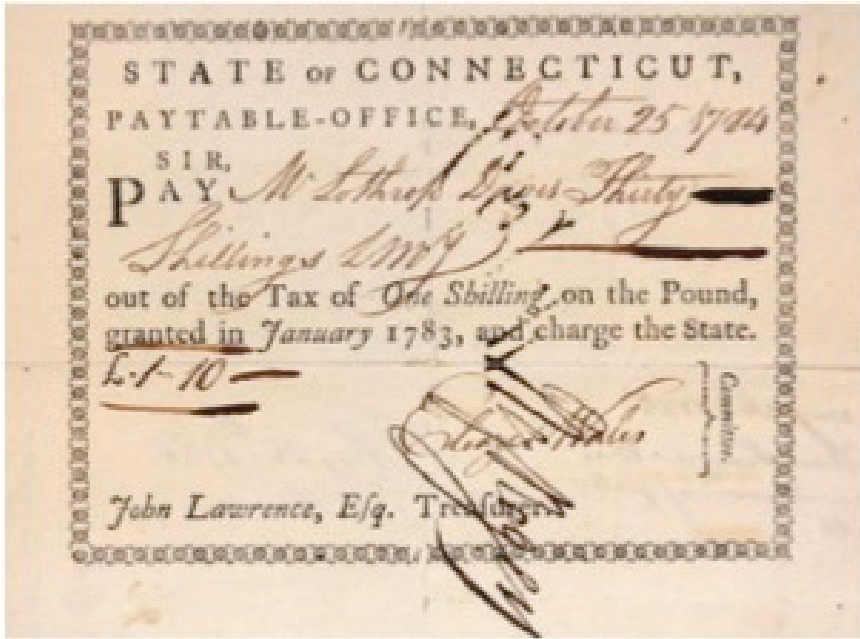 STATE OF CONNECTICUT,
PAYTABLE-OFFICE, October 25 1784
SIR,
PAY Mr Lothrop Davis Thirty
Shillings LMy
out of the Tax of One Shilling on the Pound,
granted in January 1783, and charge the State.
£.1-10-
Eleazr Wales
Committee.
John Lawrence, Esq. Treasurer.